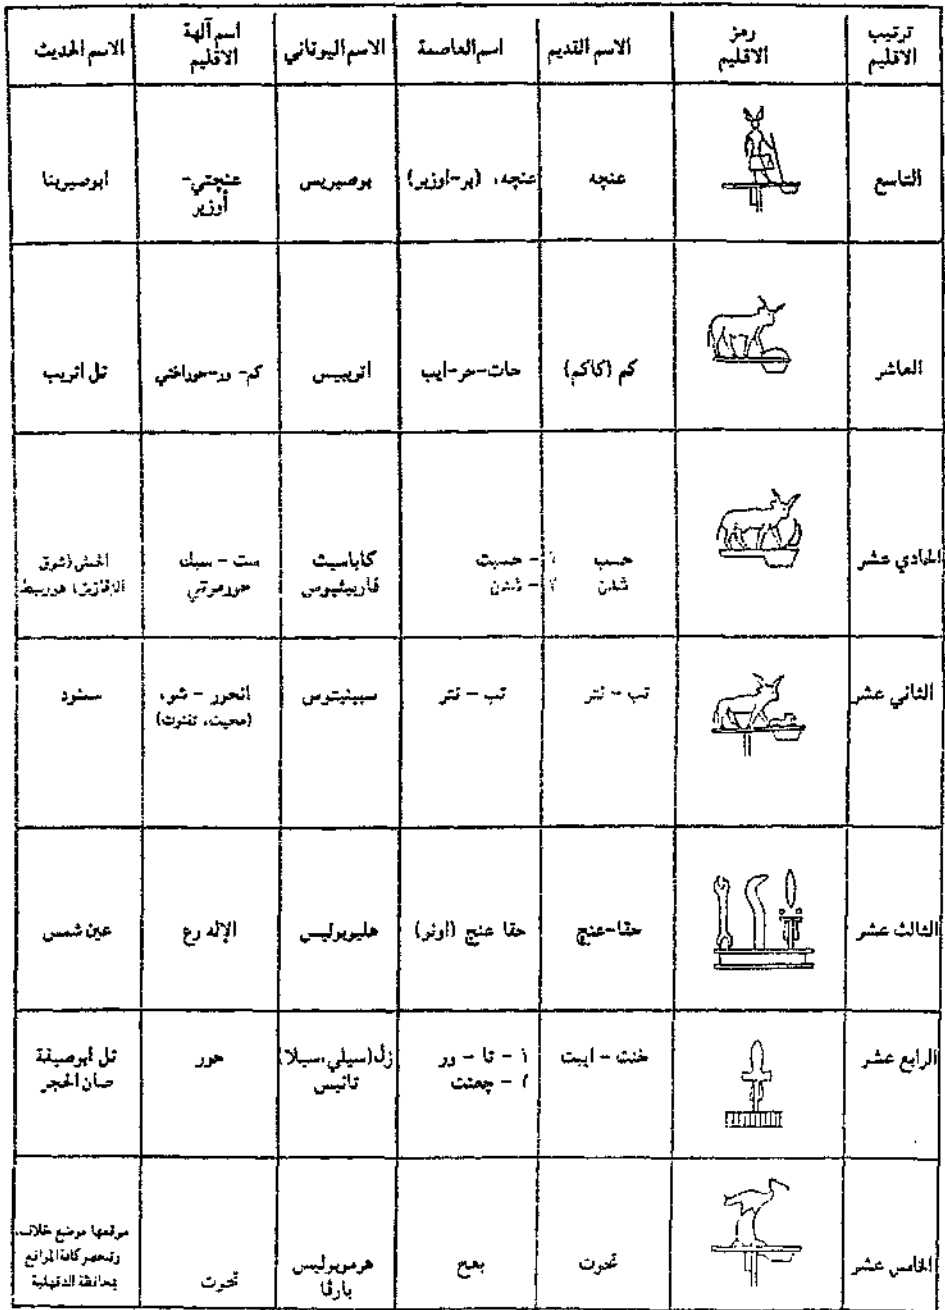 ترتيب الاقليم
رمز الاقليم
الاسم القديم
اسم العاصمة
الاسم اليوناني
اسم آلهة الاقليم
الاسم الحديث
التاسع
عنجه
عنجه، (بر-اوزير)
بوصيريس
عنجتي- أوزير
ابوصيربنا
العاشر
كم (كاكم)
حات-حر-ايب
اتريبيس
كم- ور-حوراختي
تل اتريب
الحادي عشر
حسب
شدن
١ - حسبت
٢ - شدن
كاباسيت
فاربيثيوس
ست - سبك
حورمرتي
(شرق
هوربيط
الثاني عشر
تب - نتر
تب - نتر
سبينيتوس
انحور - شو،
(محيت، تفنوت)
سمنود
الثالث عشر
حقا-عنج
حقا عنج (اونر)
هليوبوليس
الإله رع
عين شمس
الرابع عشر
خنت - ايبت
١ - تا - ور
٢ - جعنت
زل(سيلي،سيلا)
تانيس
حور
تل أبوصيفة
صان الحجر
الخامس عشر
تحوت
بعح
هرموبوليس
بارفا
تحوت
موقعها موضع خلاف،
وتنحصر كافة المواقع
بمحافظة الدقهلية